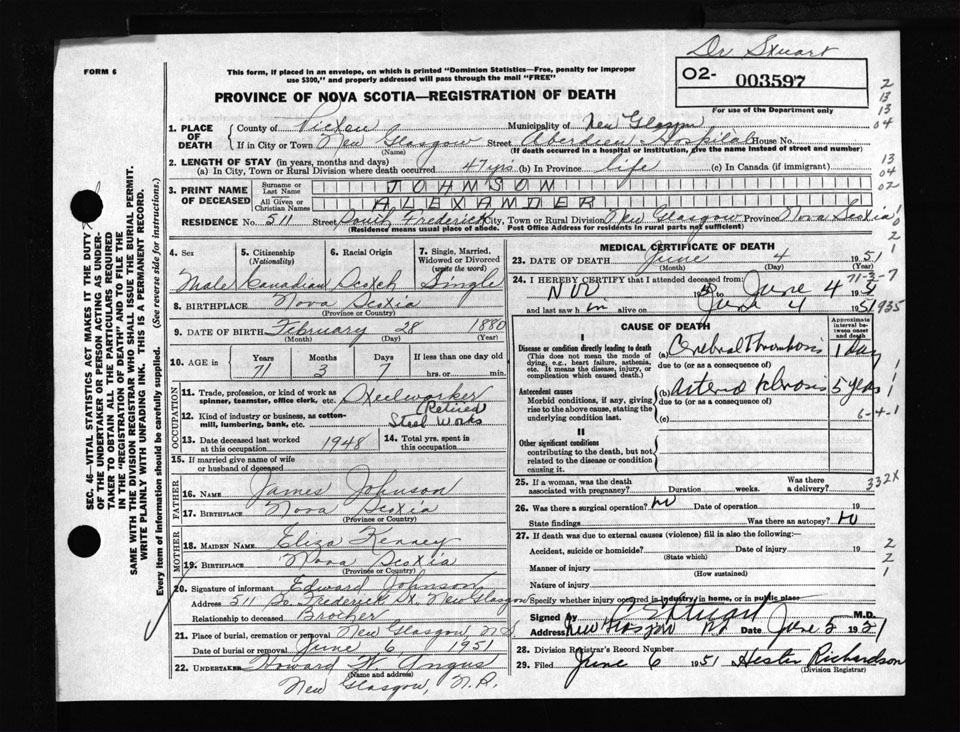 Dr Stuart
FORM 6
This form, if placed in an envelope, on which is printed "Dominion Statistics—Free, penalty for improper
use $300," and properly addressed will pass through the mail "FREE"
O2- 003597
For use of the Department only
PROVINCE OF NOVA SCOTIA—REGISTRATION OF DEATH
1. PLACE OF DEATH County of Pictou Municipality of New Glasgow
If in City or Town New Glasgow Street Aberdien Hospital House No.
(Name) (If death occurred in a hospital or institution, give the name instead of street and number)
2. LENGTH OF STAY (in years, months and days)
(a) In City, Town or Rural Division where death occurred 47 yrs (b) In Province life (c) In Canada (if immigrant)
3. PRINT NAME OF DECEASED Surname or Last Name JOHNSON
All Given or Christian Names ALEXANDER
RESIDENCE No. 511 Street South Frederick City, Town or Rural Division New Glasgow Province Nova Scotia
(Residence means usual place of abode. Post Office Address for residents in rural parts not sufficient)
4. Sex 5. Citizenship (Nationality) 6. Racial Origin 7. Single, Married, Widowed or Divorced (write the word)
Male Canadian Scotch Single
8. BIRTHPLACE Nova Scotia
(Province or Country)
9. DATE OF BIRTH February 28 1880
(Month) (Day) (Year)
10. AGE in Years Months Days If less than one day old
71 3 7 hrs. or min.
OCCUPATION
11. Trade, profession, or kind of work as spinner, teamster, office clerk, etc. Steelworker
(Retired
12. Kind of industry or business, as cotton-mill, lumbering, bank, etc. Steel Works
13. Date deceased last worked at this occupation 1948 14. Total yrs. spent in this occupation
15. If married give name of wife or husband of deceased
FATHER
16. NAME James Johnson
17. BIRTHPLACE Nova Scotia
(Province or Country)
MOTHER
18. MAIDEN NAME Eliza
19. BIRTHPLACE Nova Scotia
(Province or Country)
20. Signature of informant Edward Johnson
Address 511 So. Frederick St. New Glasgow
Relationship to deceased Brother
21. Place of burial, cremation or removal New Glasgow, N.S.
Date of burial or removal June 6 1951
22. UNDERTAKER Howard W. Angus
(Name and address)
New Glasgow, N.S.
MEDICAL CERTIFICATE OF DEATH
23. DATE OF DEATH June 4 1951
(Month) (Day) (Year)
24. I HEREBY CERTIFY that I attended deceased from
to June 4 1951
and last saw him alive on June 4 1951
CAUSE OF DEATH
Approximate interval between onset and death
I
Disease or condition directly leading to death (a) Cerebral Thrombosis 1 day
(This does not mean the mode of dying, e.g., heart failure, asthenia, etc. It means the disease, injury, or complication which caused death.)
due to (or as a consequence of)
Antecedent causes (b) Arteriosclerosis 5 years
Morbid conditions, if any, giving rise to the above cause, stating the underlying condition last.
due to (or as a consequence of)
(c)
II
Other significant conditions
contributing to the death, but not related to the disease or condition causing it.
25. If a woman, was the death associated with pregnancy? Duration weeks. Was there a delivery?
26. Was there a surgical operation? no Date of operation 19
State findings Was there an autopsy? no
27. If death was due to external causes (violence) fill in also the following:—
Accident, suicide or homicide? Date of injury 19
(State which)
Manner of injury
(How sustained)
Nature of injury
Specify whether injury occurred in industry, in home, or in public place
Signed by M.D.
Address New Glasgow NS Date June 5 1951
28. Division Registrar's Record Number
29. Filed June 6 1951 Hester Richardson
(Division Registrar)
2
13
13
04
13
04
02
71-3-7
1935
6-4-1
332X
2
2
1
SEC. 46—VITAL STATISTICS ACT MAKES IT THE DUTY
OF THE UNDERTAKER OR PERSON ACTING AS UNDER-
TAKER TO OBTAIN ALL THE PARTICULARS REQUIRED
IN THE "REGISTRATION OF DEATH" AND TO FILE THE
SAME WITH THE DIVISION REGISTRAR WHO SHALL ISSUE THE BURIAL PERMIT.
WRITE PLAINLY WITH UNFADING INK. THIS IS A PERMANENT RECORD.
Every item of information should be carefully supplied. (See reverse side for instructions.)